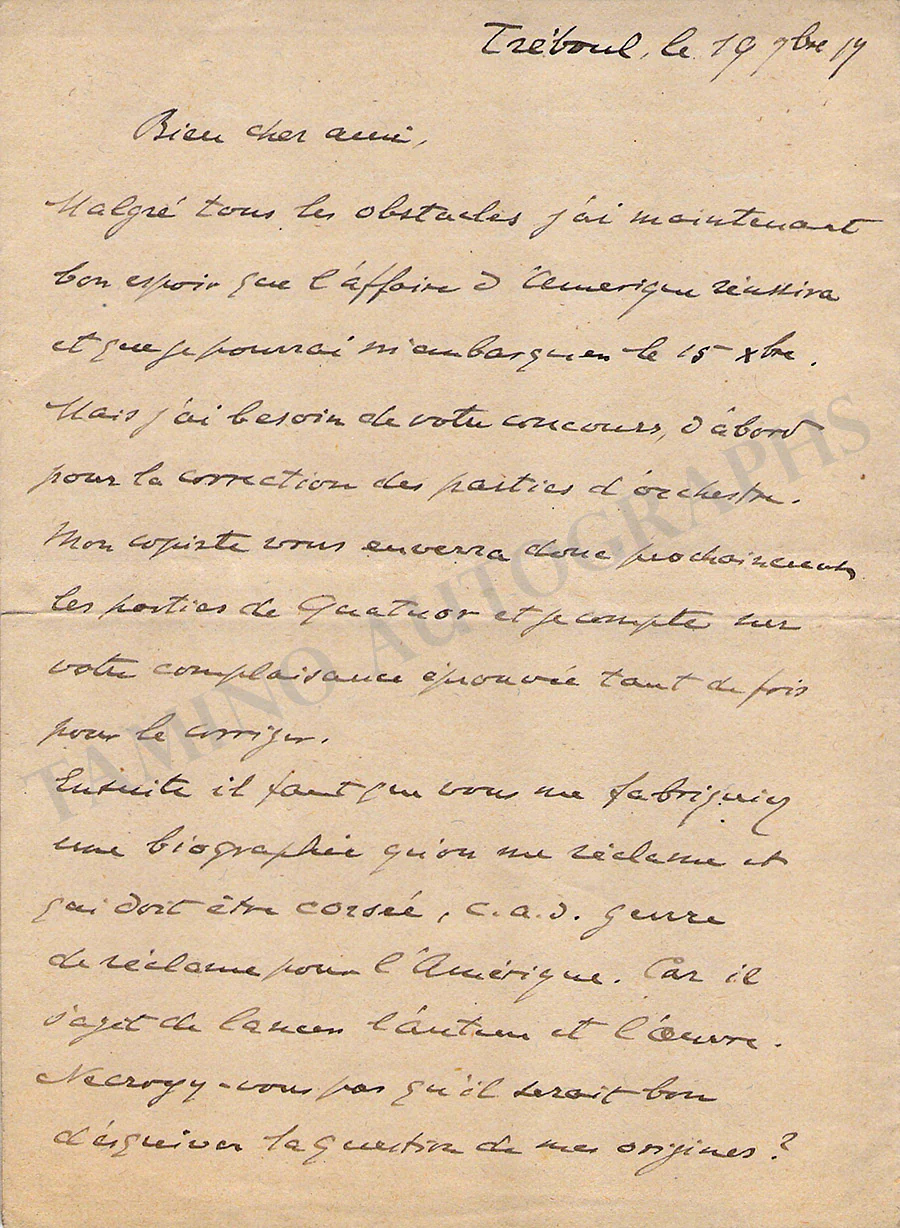 Tréboul, le 19 9bre 17
Bien cher ami,
Malgré tous les obstacles j'ai maintenant
bon espoir que l'affaire d'Amerique réussira
et que je pourrai m'embarquer le 15 xbre.
Mais j'ai besoin de votre concours, d'abord
pour la correction des parties d'orchestre.
Mon copiste vous enverra donc prochainement
les parties de Quatuor et je compte sur
votre complaisance éprouvée tant de fois
pour le corriger.
Ensuite il faut que vous me fabriquiez
une biographie qu'on me réclame et
qui doit être corsée, c.a.d. genre
de réclame pour l'Amérique. Car il
s'agit de lancer l'auteur et l'Œuvre.
Necroyez-vous pas qu'il serait bon
d'esquiver la question de mes origines?
TAMINO AUTOGRAPHS